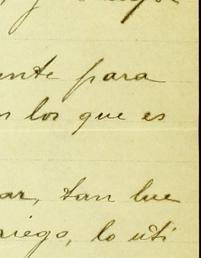 ente para
n los que es
ar, tan lue
riego, lo uti